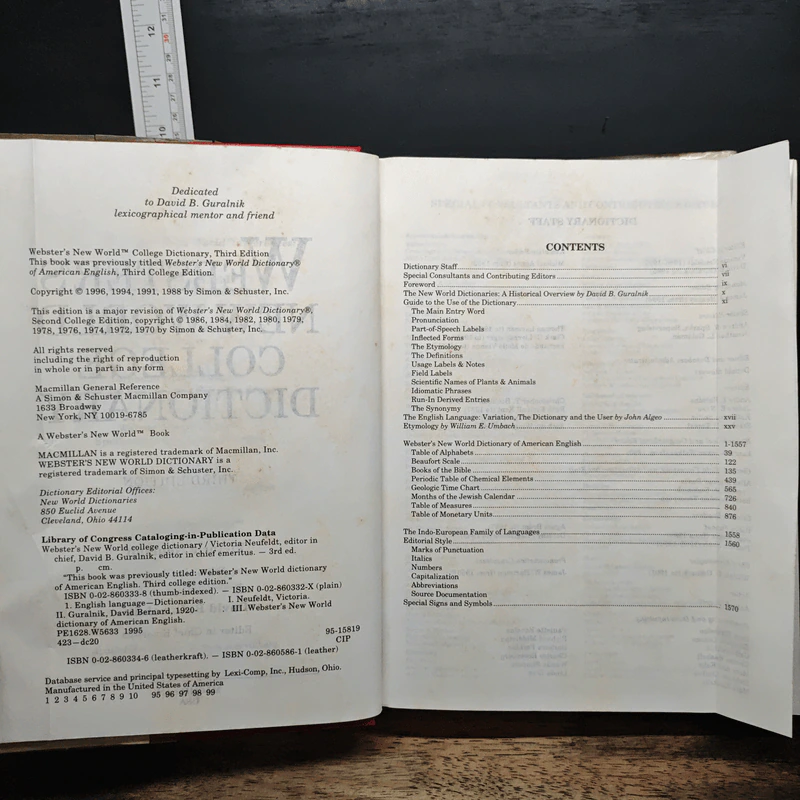 12
11
10
30
Dedicated
to David B. Guralnik
lexicographical mentor and friend
Webster's New World™ College Dictionary, Third Edition
This book was previously titled Webster's New World Dictionary®
of American English, Third College Edition.
Copyright © 1996, 1994, 1991, 1988 by Simon & Schuster, Inc.
This edition is a major revision of Webster's New World Dictionary®,
Second College Edition, copyright © 1986, 1984, 1982, 1980, 1979,
1978, 1976, 1974, 1972, 1970 by Simon & Schuster, Inc.
All rights reserved
including the right of reproduction
in whole or part in any form
Macmillan General Reference
A Simon & Schuster Macmillan Company
1633 Broadway
New York, NY 10019-6785
A Webster's New World™ Book
MACMILLAN is a registered trademark of Macmillan, Inc.
WEBSTER'S NEW WORLD DICTIONARY is a
registered trademark of Simon & Schuster, Inc.
Dictionary Editorial Offices:
New World Dictionaries
850 Euclid Avenue
Cleveland, Ohio 44114
Library of Congress Cataloging-in-Publication Data
Webster's New World college dictionary / Victoria Neufeldt, editor in
chief, David B. Guralnik, editor in chief emeritus. — 3rd ed.
p. cm.
"This book was previously titled: Webster's New World dictionary
of American English. Third college edition."
ISBN 0-02-860333-8 (thumb-indexed). — ISBN 0-02-860332-X (plain)
1. English language—Dictionaries. I. Neufeldt, Victoria.
II. Guralnik, David Bernard, 1920- III. Webster's New World
dictionary of American English.
PE1628.W5633 1995 95-15819
423—dc20 CIP
ISBN 0-02-860334-6 (leatherkraft). — ISBN 0-02-860586-1 (leather)
Database service and principal typesetting by Lexi-Comp, Inc., Hudson, Ohio.
Manufactured in the United States of America
1 2 3 4 5 6 7 8 9 10 95 96 97 98 99
CONTENTS
Dictionary Staff vi
Special Consultants and Contributing Editors vii
Foreword ix
The New World Dictionaries: A Historical Overview by David B. Guralnik x
Guide to the Use of the Dictionary xi
The Main Entry Word
Pronunciation
Part-of-Speech Labels
Inflected Forms
The Etymology
The Definitions
Usage Labels & Notes
Field Labels
Scientific Names of Plants & Animals
Idiomatic Phrases
Run-In Derived Entries
The Synonymy
The English Language: Variation, The Dictionary and the User by John Algeo xvii
Etymology by William E. Umbach xxv
Webster's New World Dictionary of American English 1-1557
Table of Alphabets 39
Beaufort Scale 122
Books of the Bible 135
Periodic Table of Chemical Elements 439
Geologic Time Chart 565
Months of the Jewish Calendar 726
Table of Measures 840
Table of Monetary Units 876
The Indo-European Family of Languages 1558
Editorial Style 1560
Marks of Punctuation
Italics
Numbers
Capitalization
Abbreviations
Source Documentation
Special Signs and Symbols 1570